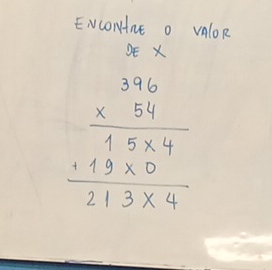 ENCONTRE O VALOR
DE X
396
x 54
15x4
+ 19x0
213x4